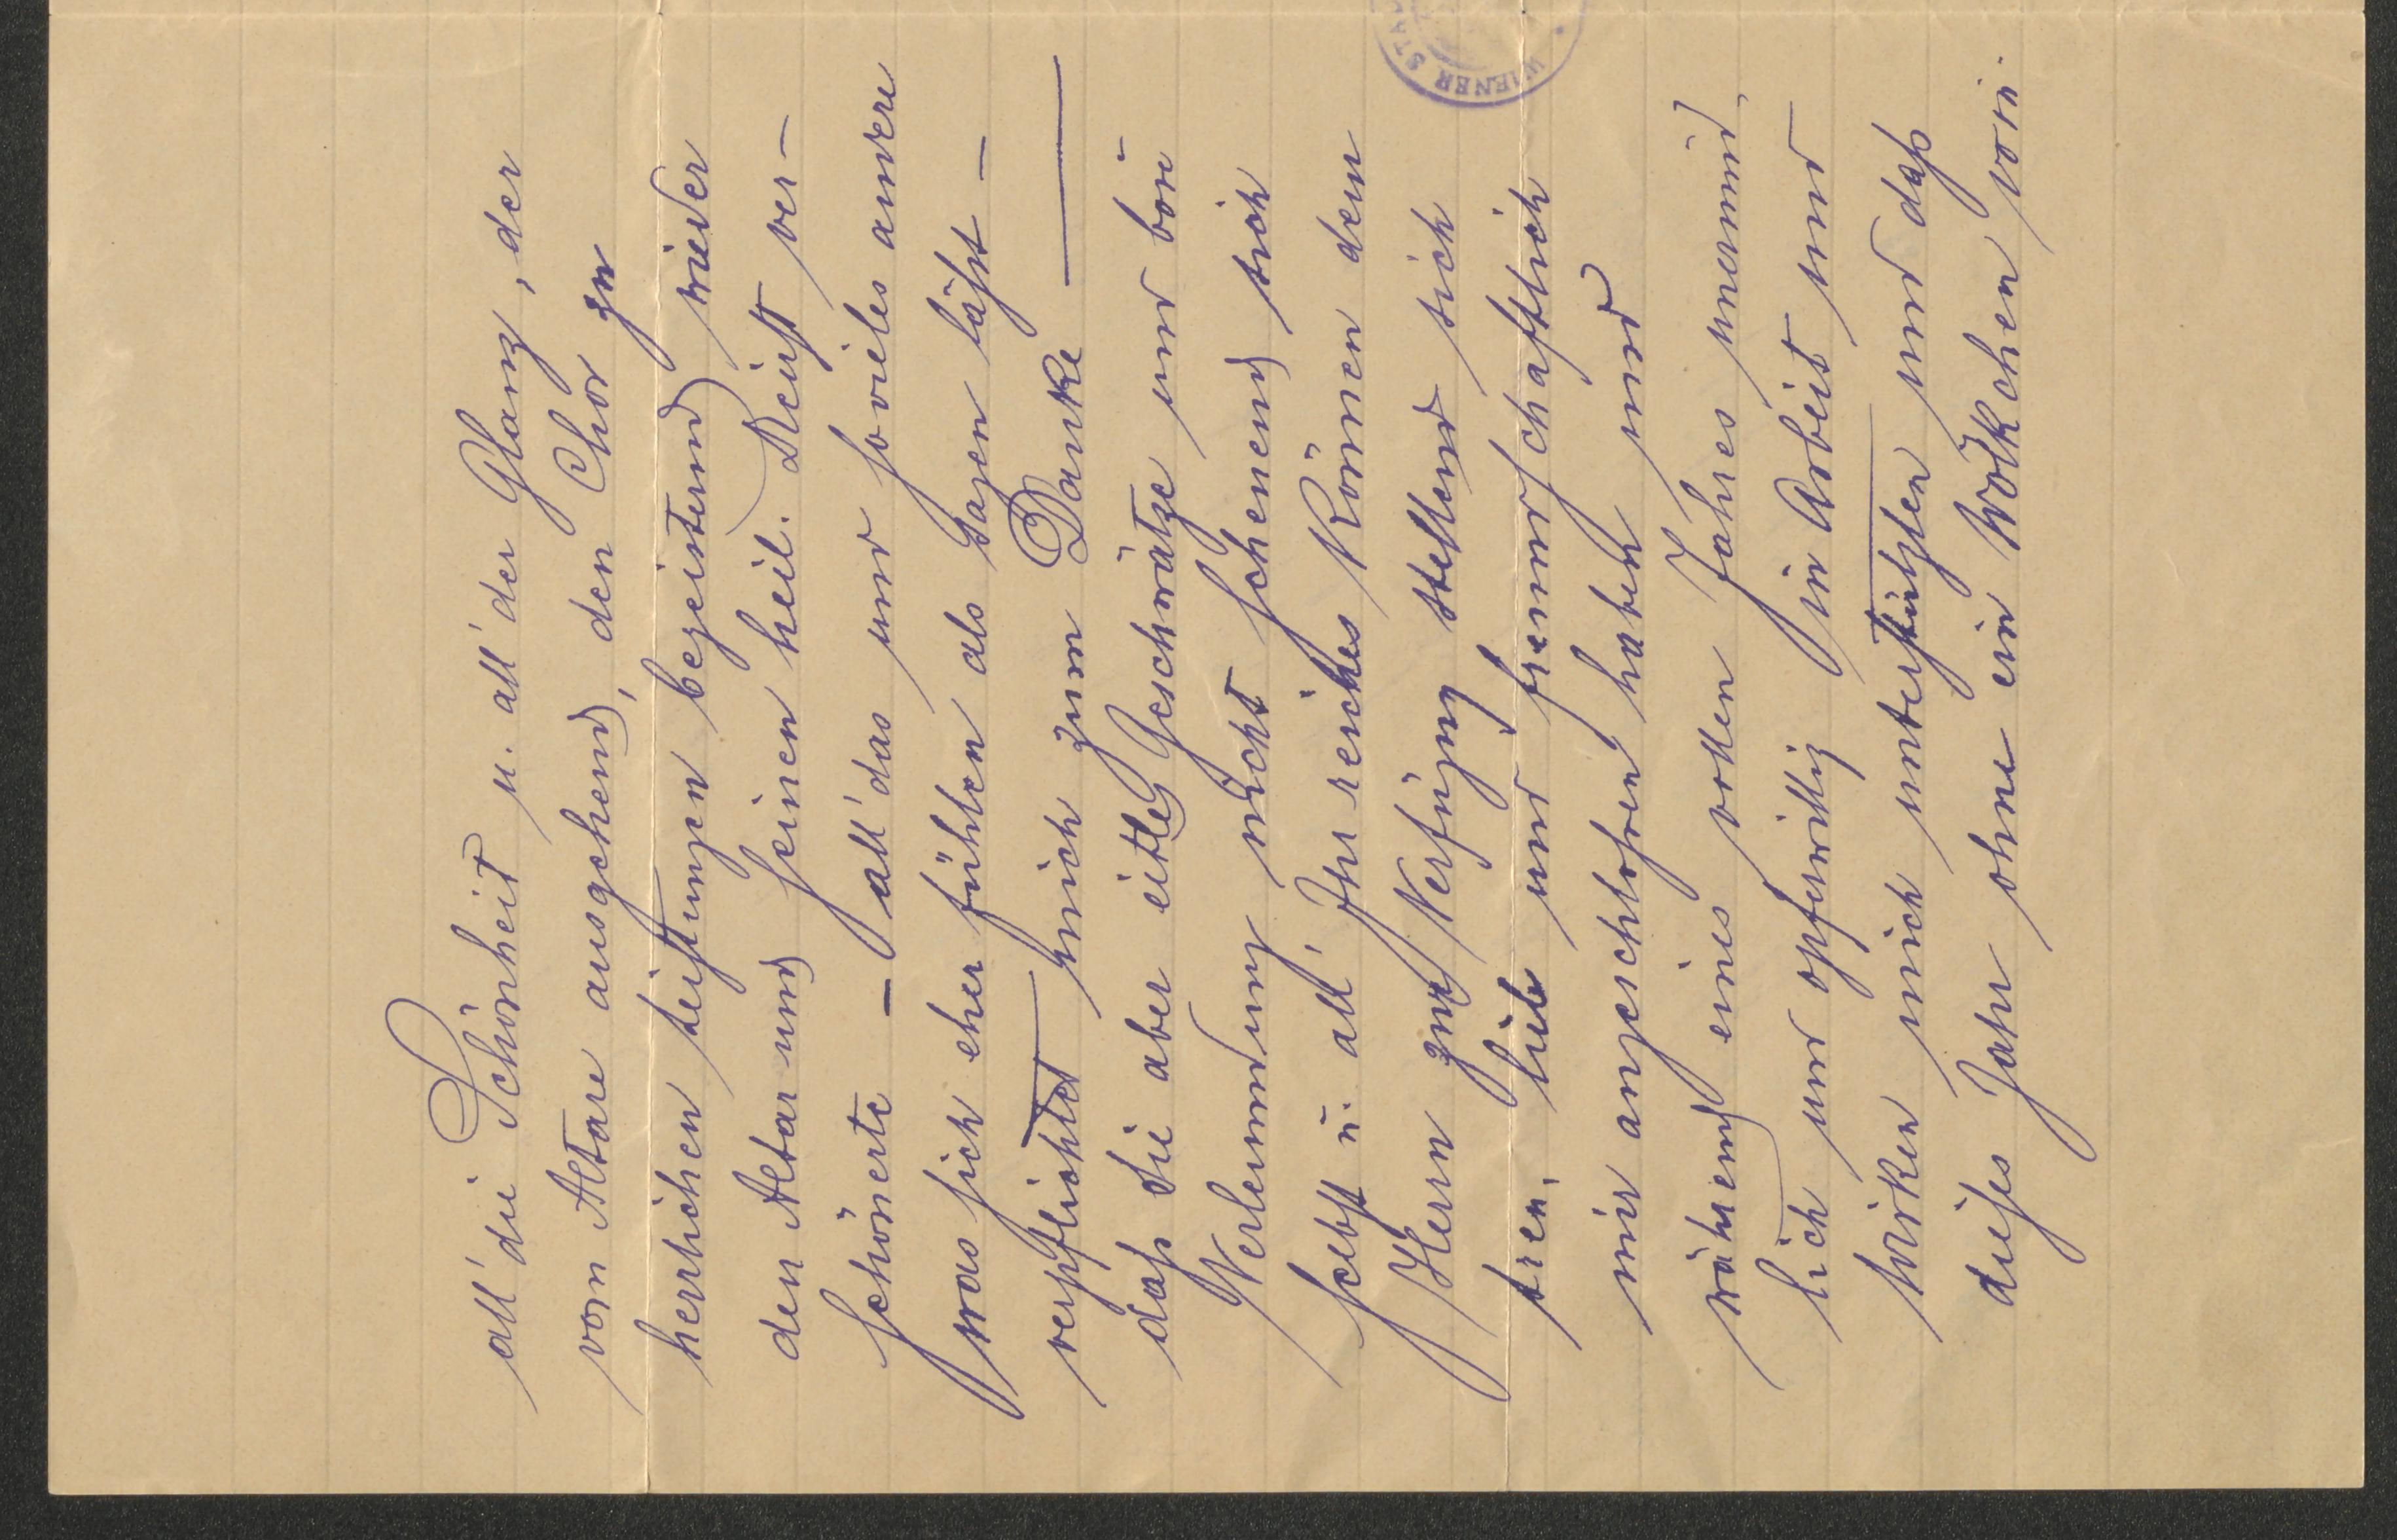 all' die Schönheit u. all' der Glanz, der
vom Altare ausgehend, den Chor zu
herrlichen Leistungen begeisternd wieder
den Altar und seinen heil. Dienst ver-
schönerte – all' das und so vieles andere
was sich eher fühlen als sagen läßt –
verpflichtet mich zum Danke ——
daß Sie aber eitles Geschwätze und böse
Verleumdung nicht scheuend sich
selbst u. all' Ihr reiches Können dem
Herrn zur Verfügung stellend sich
treu, lieb und freundschaftlich
mir angeschlossen haben und
während eines vollen Jahres unermüd-
lich und opferwillig in Arbeit und
Wirken mich unterstützten und daß
dieses Jahr ohne ein Wölkchen vorü-
WIENER STA